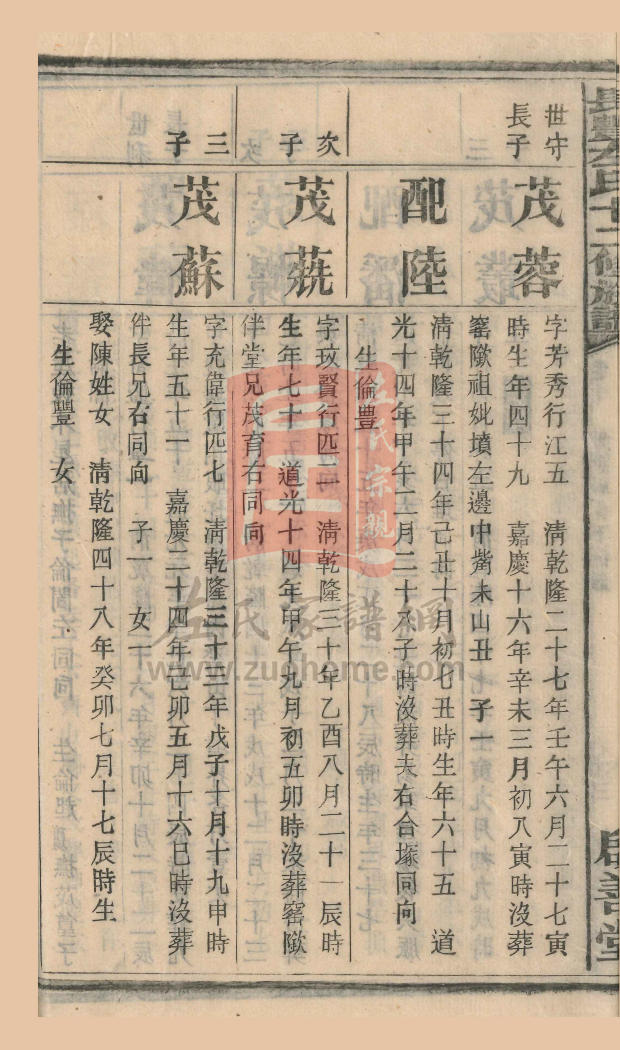 長豐左氏十二修族譜
啟善堂
世守
長子
茂蓉
字芳秀行江五　清乾隆二十七年壬午六月二十七寅
時生年四十九　嘉慶十六年辛未三月初八寅時沒葬
窰歐祖妣墳左邊中觜未山丑　子一
配陸
清乾隆三十四年己丑十月初七丑時生年六十五　道
光十四年甲午三月二十八子時沒葬夫右合塚同向
生倫豊
次
子
茂蕘
字玟賢行匹二　清乾隆三十年乙酉八月二十一辰時
生年七十　道光十四年甲午九月初五卯時沒葬窰歐
伴堂兄茂育右同向
三
子
茂蘇
字充偉行匹七　清乾隆三十三年戊子十月十九申時
生年五十一　嘉慶二十四年己卯五月十六巳時沒葬
伴長兄右同向　子一　女一
娶陳姓女　清乾隆四十八年癸卯七月十七辰時生
生倫豐　女
左氏宗親
左氏家譜網
www.zuohome.com